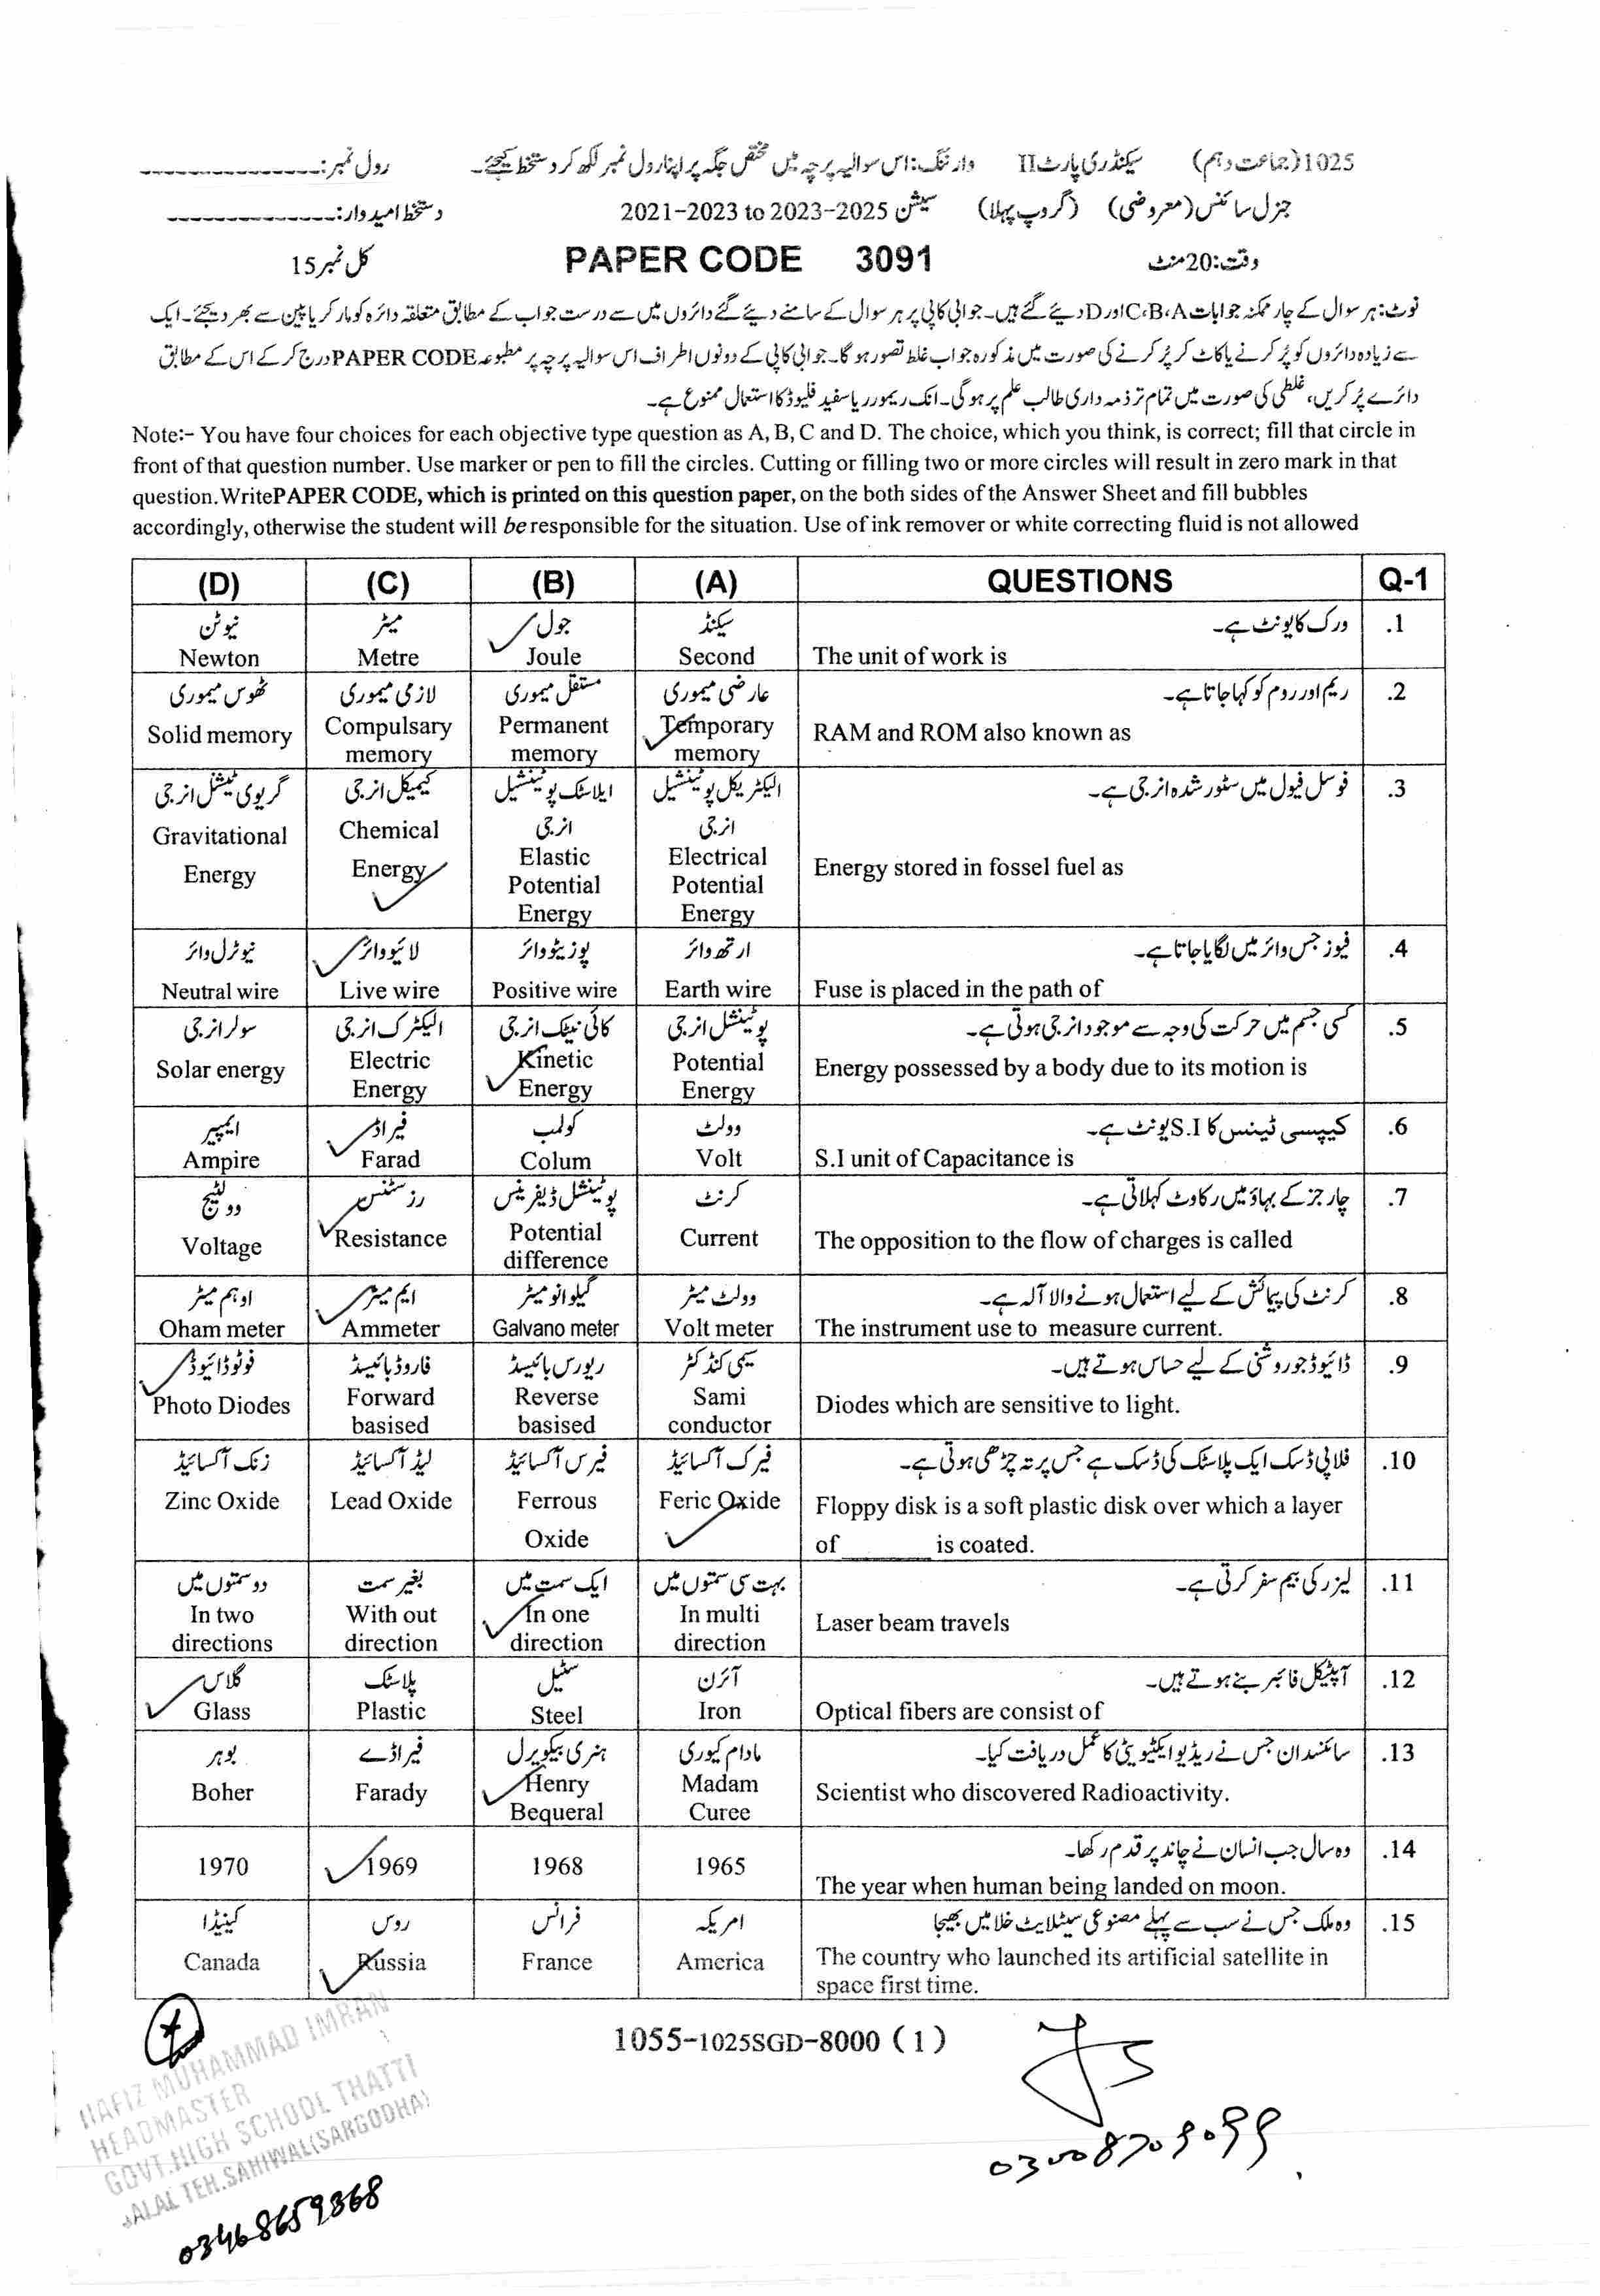 1025(جماعت دہم) سیکنڈری پارٹ II وارننگ:اس سوالیہ پرچہ میں مختص جگہ پر اپنا رول نمبر لکھ کر دستخط کیجئے۔ رول نمبر:
جنرل سائنس(معروضی) (گروپ پہلا) سیشن 2021-2023 to 2023-2025 دستخط امیدوار:
وقت:20منٹ PAPER CODE 3091 کل نمبر15
نوٹ:ہر سوال کے چار ممکنہ جوابات C،B،A اور D دیئے گئے ہیں۔جوابی کاپی پر ہر سوال کے سامنے دیئے گئے دائروں میں سے درست جواب کے مطابق متعلقہ دائرہ کو مارکر یا پین سے بھر دیجئے۔ایک
سے زیادہ دائروں کو پُر کرنے یا کاٹ کر پُر کرنے کی صورت میں مذکورہ جواب غلط تصور ہو گا۔جوابی کاپی کے دونوں اطراف اس سوالیہ پرچہ پر مطبوعہ PAPER CODE درج کر کے اس کے مطابق
دائرے پُر کریں،غلطی کی صورت میں تمام تر ذمہ داری طالب علم پر ہو گی۔انک ریمورر یا سفید فلیوڈ کا استعمال ممنوع ہے۔
Note:- You have four choices for each objective type question as A, B, C and D. The choice, which you think, is correct; fill that circle in
front of that question number. Use marker or pen to fill the circles. Cutting or filling two or more circles will result in zero mark in that
question.WritePAPER CODE, which is printed on this question paper, on the both sides of the Answer Sheet and fill bubbles
accordingly, otherwise the student will be responsible for the situation. Use of ink remover or white correcting fluid is not allowed
(D) (C) (B) (A) QUESTIONS Q-1
نیوٹن میٹر جول سیکنڈ ورک کا یونٹ ہے۔ .1
Newton Metre Joule Second The unit of work is
ٹھوس میموری لازمی میموری مستقل میموری عارضی میموری ریم اور روم کو کہا جاتا ہے۔ .2
Solid memory Compulsary memory Permanent memory Temporary memory RAM and ROM also known as
گریوی ٹیشنل انرجی کیمیکل انرجی ایلاسٹک پوٹینشیل انرجی الیکٹریکل پوٹینشیل انرجی فوسل فیول میں سٹور شدہ انرجی ہے۔ .3
Gravitational Energy Chemical Energy Elastic Potential Energy Electrical Potential Energy Energy stored in fossel fuel as
نیوٹرل وائر لائیو وائر پوزیٹو وائر ارتھ وائر فیوز جس وائر میں لگایا جاتا ہے۔ .4
Neutral wire Live wire Positive wire Earth wire Fuse is placed in the path of
سولر انرجی الیکٹرک انرجی کائی نیٹک انرجی پوٹینشل انرجی کسی جسم میں حرکت کی وجہ سے موجود انرجی ہوتی ہے۔ .5
Solar energy Electric Energy Kinetic Energy Potential Energy Energy possessed by a body due to its motion is
ایمپیر فیراڈ کولمب وولٹ کیپسی ٹینس کا S.I یونٹ ہے۔ .6
Ampire Farad Colum Volt S.I unit of Capacitance is
وولٹیج رزسٹنس پوٹینشل ڈیفرینس کرنٹ چارجز کے بہاؤ میں رکاوٹ کہلاتی ہے۔ .7
Voltage Resistance Potential difference Current The opposition to the flow of charges is called
اوہم میٹر ایم میٹر گیلوانومیٹر وولٹ میٹر کرنٹ کی پیمائش کے لیے استعمال ہونے والا آلہ ہے۔ .8
Oham meter Ammeter Galvano meter Volt meter The instrument use to measure current.
فوٹو ڈائیوڈ فارورڈ بائیسڈ ریورس بائیسڈ سیمی کنڈکٹر ڈائیوڈ جو روشنی کے لیے حساس ہوتے ہیں۔ .9
Photo Diodes Forward basised Reverse basised Sami conductor Diodes which are sensitive to light.
زنک آکسائیڈ لیڈ آکسائیڈ فیرس آکسائیڈ فیرک آکسائیڈ فلاپی ڈسک ایک پلاسٹک کی ڈسک ہے جس پر تہ چڑھی ہوتی ہے۔ .10
Zinc Oxide Lead Oxide Ferrous Oxide Feric Oxide Floppy disk is a soft plastic disk over which a layer
of ______ is coated.
دو سمتوں میں بغیر سمت ایک سمت میں بہت سی سمتوں میں لیزر کی بیم سفر کرتی ہے۔ .11
In two directions With out direction In one direction In multi direction Laser beam travels
گلاس پلاسٹک سٹیل آئرن آپٹیکل فائبر بنے ہوتے ہیں۔ .12
Glass Plastic Steel Iron Optical fibers are consist of
بوہر فیراڈے ہنری بیکویرل مادام کیوری سائنسدان جس نے ریڈیو ایکٹیویٹی کا عمل دریافت کیا۔ .13
Boher Farady Henry Bequeral Madam Curee Scientist who discovered Radioactivity.
وہ سال جب انسان نے چاند پر قدم رکھا۔ .14
1970 1969 1968 1965 The year when human being landed on moon.
کینیڈا روس فرانس امریکہ وہ ملک جس نے سب سے پہلے مصنوعی سیٹلائٹ خلا میں بھیجا .15
Canada Russia France America The country who launched its artificial satellite in
space first time.
1055-1025SGD-8000 (1)
HAFIZ MUHAMMAD IMRAN
HEADMASTER
GOVT.HIGH SCHOOL THATTI
JALAL TEH.SAHIWAL(SARGODHA)
03468659368
03008709099